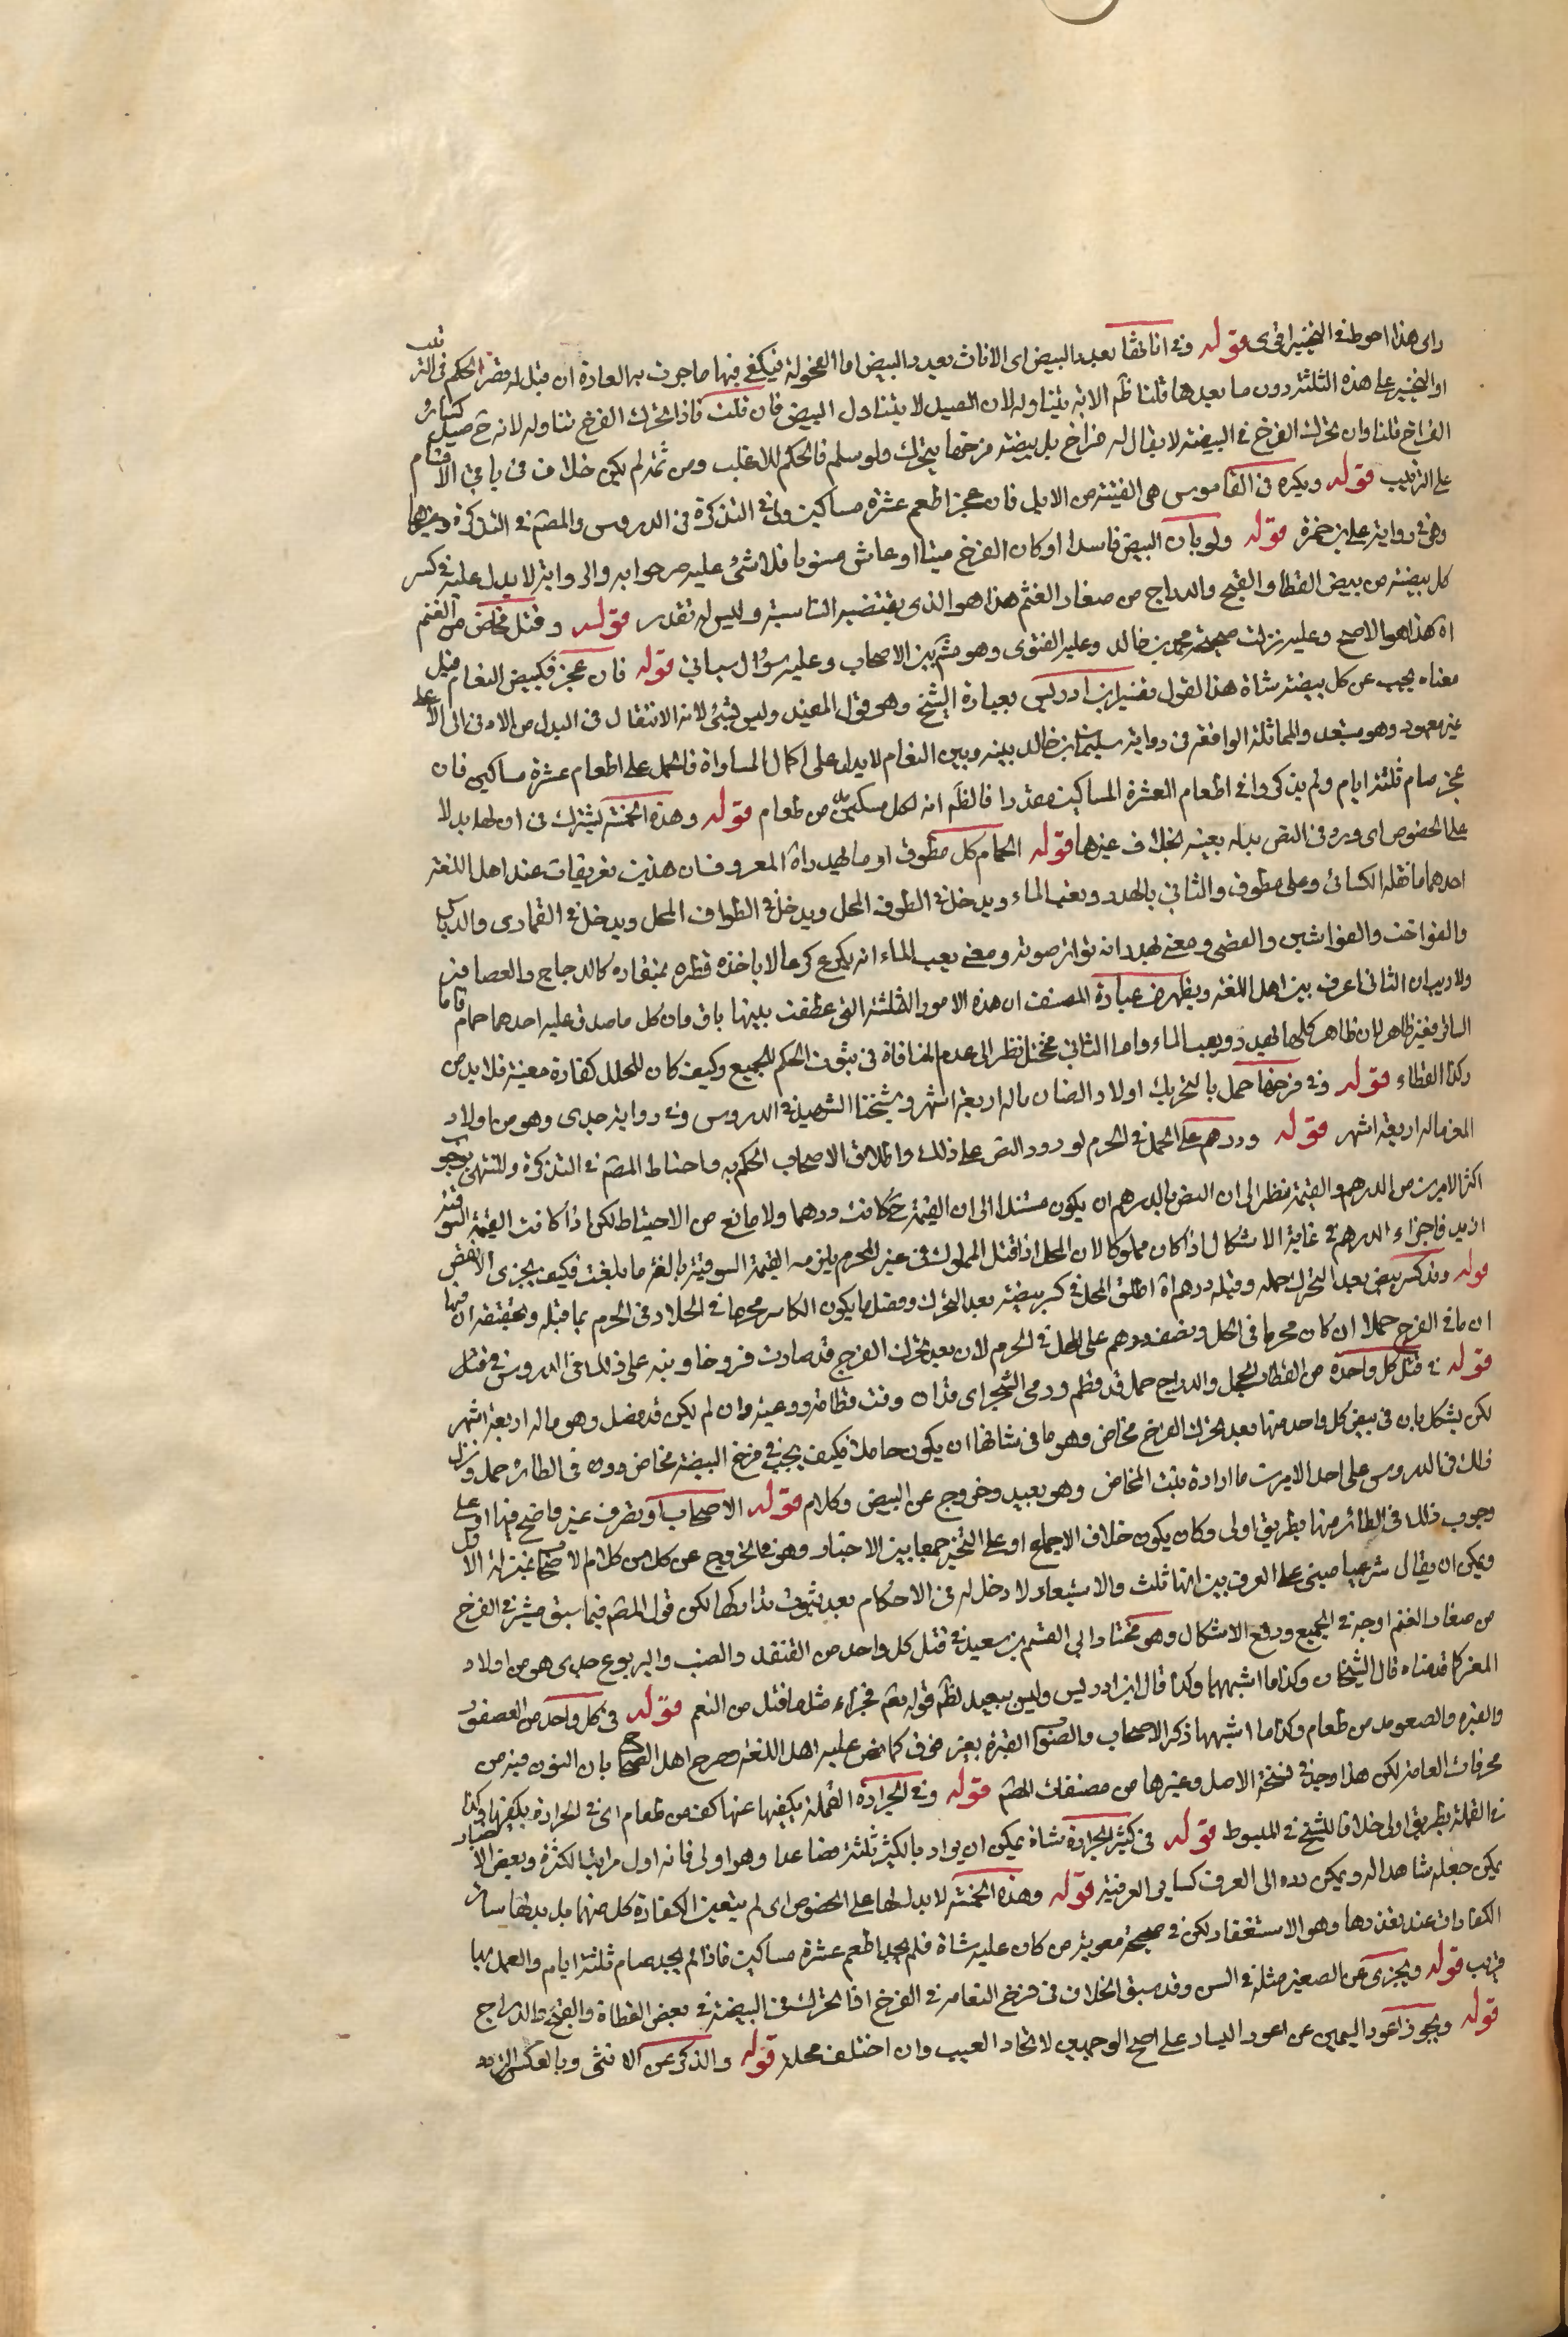 راى هذا احوط في التخيير اقوى قوله وفى اناثها بعدد البيض اى الاناث بعدد البيض اما الفحولة فيكفى فيها ما جرت به العادة ان قيل لم قصر الحكم فى الترتيب
او التخيير على هذه الثلثة دون ما بعدها قلنا ظم الاية يتناوله لان الصيد لا يتناول البيض فان قلت فاذا تحرك الفرخ تناوله لانه ح صيد كسائر
الفراخ قلنا وان تحرك الفرخ فى البيضة لا يقال له فراخ بل بيضة فرخها يتحرك ولو سلم فالحكم للاغلب ومن ثمة لم يكن خلاف فى باقى الاقسام
على الترتيب قوله وبكرة فى القاموس هى الفتية من الابل فان عجز اطعم عشرة مساكين وفى التذكرة فى الدروس والمصم فى التذكرة وغيرها
وهى رواية على بن حمزة قوله ولو بان البيض فاسدا او كان الفرخ ميتا او عاش مسويا فلا شئ عليه صرحوا به والرواية لا يدل عليه فى كسر
كل بيضة من بيض القطا والقبج والدراج من صغار الغنم هذا هو الذى يقتضيه التناسب وليس له تقدير قوله وقتل مخاض من الغنم
اه هذا هو الاصح وعليه نزلت صحيحة محمد بن خالد وعليه الفتوى وهو مشهر بين الاصحاب وعليه سؤال سياتى قوله فان عجز فكبيض النعام قيل
معناه يجب عن كل بيضة شاة هذا القول تفسير ابن ادريس بعبارة الشيخ وهى قول المفيد وليس بشئ لانه الانتقال فى البدل من الادنى الى الاعلى
غير معهود وهو مستبعد والمماثلة الواقعة فى رواية سليمان بن خالد بينه وبين النعام لا يدل على اكمال المساواة فالحمل على اطعام عشرة مساكين فان
عجز صام ثلثة ايام ولم يذكروا فى اطعام العشرة المساكين مقدرا فالظم انه لكل مسكين مد من طعام قوله وهذه الخمسة يشترك فى ان لها بدلا
على الخصوص اى ورد فى النص بدله بعينه بخلاف غيرها قوله الحمام كل مطوق او ما يهدر اه المعروف ان هذين تعريفات عند اهل اللغة
احدهما ما نقله الكسائى وعلى مطوق والثانى بالهدر ويعب الماء ويدخل فى الطوق الحجل ويدخل فى الطواف الحجل ويدخل فى القمارى والدباسى
والفواخت والفواشين والقضى ومعنى يهدر انه تواتر صوته ومعنى يعب الماء انه يكرع كرعا لا ياخذه قطرة بمنقاره كالدجاج والعصافير
ولا ريب ان الثانى اعرف بين اهل اللغة ويظهر من عبارة المصنف ان هذه الامور الثلثة التى عطفت بينها باو وان كل ما صدق عليه احدهما حمام فاما
الساير فغير ظاهر لان ظاهر كلها يهدر ويعب الماء واما الثانى محتمل نظرا الى عدم المنافاة فى ثبوت الحكم للجميع وكيف كان للمحلل كفارة معينة فلا بد من
ذكر القطاء قوله وفى فرخها حمل بالتحريك اولاد الضان ماله اربعة اشهر وشيخنا الشهيد فى الدروس وفى رواية جدى وهو من اولاد
المعز ماله اربعة اشهر قوله ودرهم على المحل فى الحرم لورود النص على ذلك واطلاق الاصحاب الحكم به واحتاط المصم فى التذكرة والمنتهى بوجوب
اكثر الامرين من الدرهم والقيمة نظرا الى ان النص بالدرهم ان يكون مستندا الى ان القيمة ح كانت درهما ولا مانع من الاحتياط لكن اذا كانت القيمة السوقية
ازيد فاجزاء الدرهم فى غاية الاشكال اذا كان مملوكا لان المحل اذا قتل المملوك فى غير الحرم يلزمه القيمة السوقية بالغة ما بلغت فكيف يجزى الانقص
قوله وفى كسر بيض بعد التحرك حمل وقبله درهم اه اطلق المحل فى كسر بيضة بعد التحرك وفضل ما يكون الكاسر محرما فى الحل او فى الحرم بما قبله وتحقيقه ان فيها
ان ما فى الفرخ حملا ان كان محرما فى الحل ونصف درهم على المحل فى الحرم لان بعد تحرك الفرخ قد صارت فروخا ونبه على ذلك فى الدروس فى قتل
قوله فى قتل كل واحدة من القطا والحجل والدراج حمل قد فطم ورعى الشجر اى قد ان وقت فطامه ورعيه وان لم يكن قد فصل وهو ماله اربعة اشهر
لكن يشكل بان فى بيض كل واحد منها بعد تحرك الفرخ مخاض وهو ما فى شانها ان يكون حاملا فكيف يجب فى فرخ البيضة مخاض ودون فى الطاير حمل ونزل
ذلك فى الدروس على احد الامرين ما ارادة بنت المخاض وهو بعيد وخروج عن البيض وكلام قوله الاصحاب او تصرف غير واضح فيها او على
وجوب ذلك فى الطائر منها بطريق اولى وكان يكون خلاف الاجماع او على التخيير جمعا بين الاخبار وهو فى الخروج عن كل من كلام الاصحاب بمنزلة الاول
ويمكن ان يقال شرعيا مبنى على العرف بين انها ثلث والاستبعاد لا دخل له فى الاحكام بعد ثبوت مداركها لكن قول المصم فيما سبق يشترك الفرخ
من صغار الغنم اوجه فى الجميع ودفع الاشكال وهو مختار ابى القسم بن سعيد فى قتل كل واحد من القنفد والضب واليربوع جدى هو من اولاد
المعز كما قدمناه قال الشيخان وكذا ما اشبههما وكذا قال ابن ادريس وليس ببعيد لظم قوله تعم فجزاء مثل ما قتل من النعم قوله فى كل واحد من العصفور
والقبرة والصعو مد من طعام وكذا ما اشبهها ذكر الاصحاب والصنوا القبرة بغير خوف كما نص عليه اهل اللغة وصرح اهل الصحاح بان النون فيه من
محرفات العامة لكن هذا وجد فى نسخة الاصل وغيرها من مصنفات المصم قوله وفى الجرادة القملة يكفيها عنها كف من طعام اى فى الجرادة يكفيها وكذا
فى القملة بطريق اولى خلافا للشيخ فى المبسوط قوله فى كثير الجرادة شاة يمكن ان يراد بالكثير ثلثة فصاعدا وهو اولى فانه اول مراتب الكثرة وبعض الاخبار
يمكن جعله شاهدا له ويمكن رده الى العرف كساير العرفية قوله وهذه الخمسة لا بدل لها على الخصوص اى لم يتعين الكفارة كل منهما بل بدلها ساير
الكفارات عند تعذرها وهو الاستغفار لكن فى صحيحة معوية من كان عليه شاة فلم يجد اطعم عشرة مساكين فاذا لم يجد صام ثلثة ايام والعمل بها
قريب قوله ويجزى عن الصغير مثله فى السن وقد سبق الخلاف فى فرخ النعامه فى الفرخ اذا تحرك فى البيضة فى بعض القطاة والقبج والدراج
قوله ويجوز اعور اليمين عن اعور اليسار على اصح الوجهين لاتحاد العيب وان اختلف محله قوله والذكر عن الانثى وبالعكس